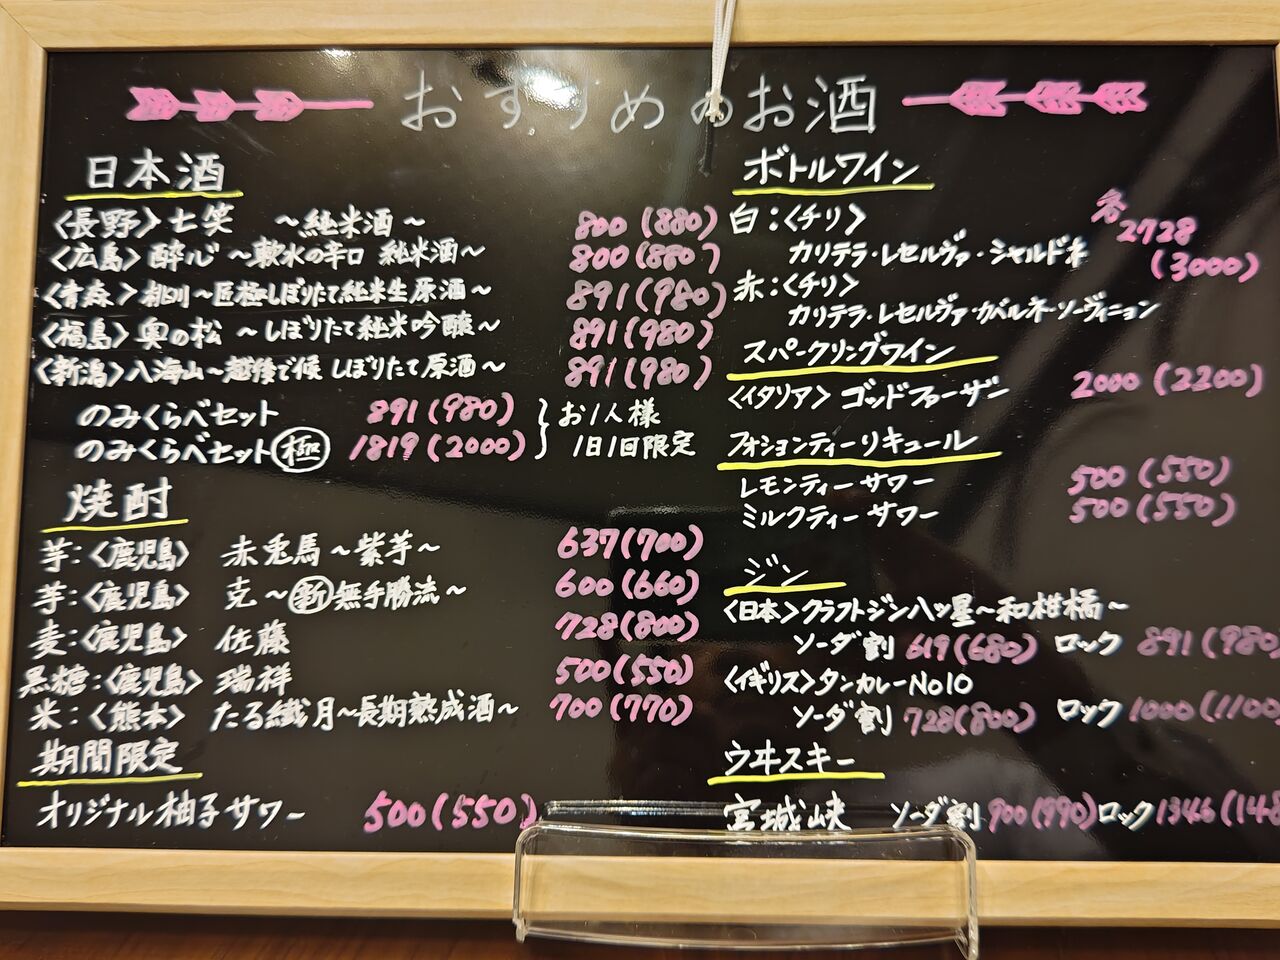 おすすめのお酒
日本酒
〈長野〉七笑 ～純米酒～ 800(880)
〈広島〉酔心 ～軟水の辛口 純米酒～ 800(880)
〈青森〉桃川～匠極しぼりたて純米生原酒～ 891(980)
〈福島〉奥の松 ～しぼりたて純米吟醸～ 891(980)
〈新潟〉八海山～越後で候 しぼりたて原酒～ 891(980)
のみくらべセット 891(980)
のみくらべセット極 1819(2000)
お1人様
1日1回限定
焼酎
芋:〈鹿児島〉 赤兎馬～紫芋～ 637(700)
芋:〈鹿児島〉 克～新無手勝流～ 600(660)
麦:〈鹿児島〉 佐藤 728(800)
黒糖:〈鹿児島〉 瑞祥 500(550)
米:〈熊本〉 たる繊月～長期熟成酒～ 700(770)
期間限定
オリジナル柚子サワー 500(550)
ボトルワイン
白:〈チリ〉 各2728
カリテラ・レセルヴァ・シャルドネ (3000)
赤:〈チリ〉
カリテラ・レセルヴァ・カバルネ・ソーヴィニョン
スパークリングワイン
〈イタリア〉ゴッドファーザー 2000(2200)
フォションティーリキュール
レモンティーサワー 500(550)
ミルクティーサワー 500(550)
ジン
〈日本〉クラフトジン八ッ星～和柑橘～
ソーダ割 619(680) ロック 891(980)
〈イギリス〉タンカレーNo10
ソーダ割 728(800) ロック 1000(1100)
ウヰスキー
宮城峡 ソーダ割 900(990) ロック 1346(148